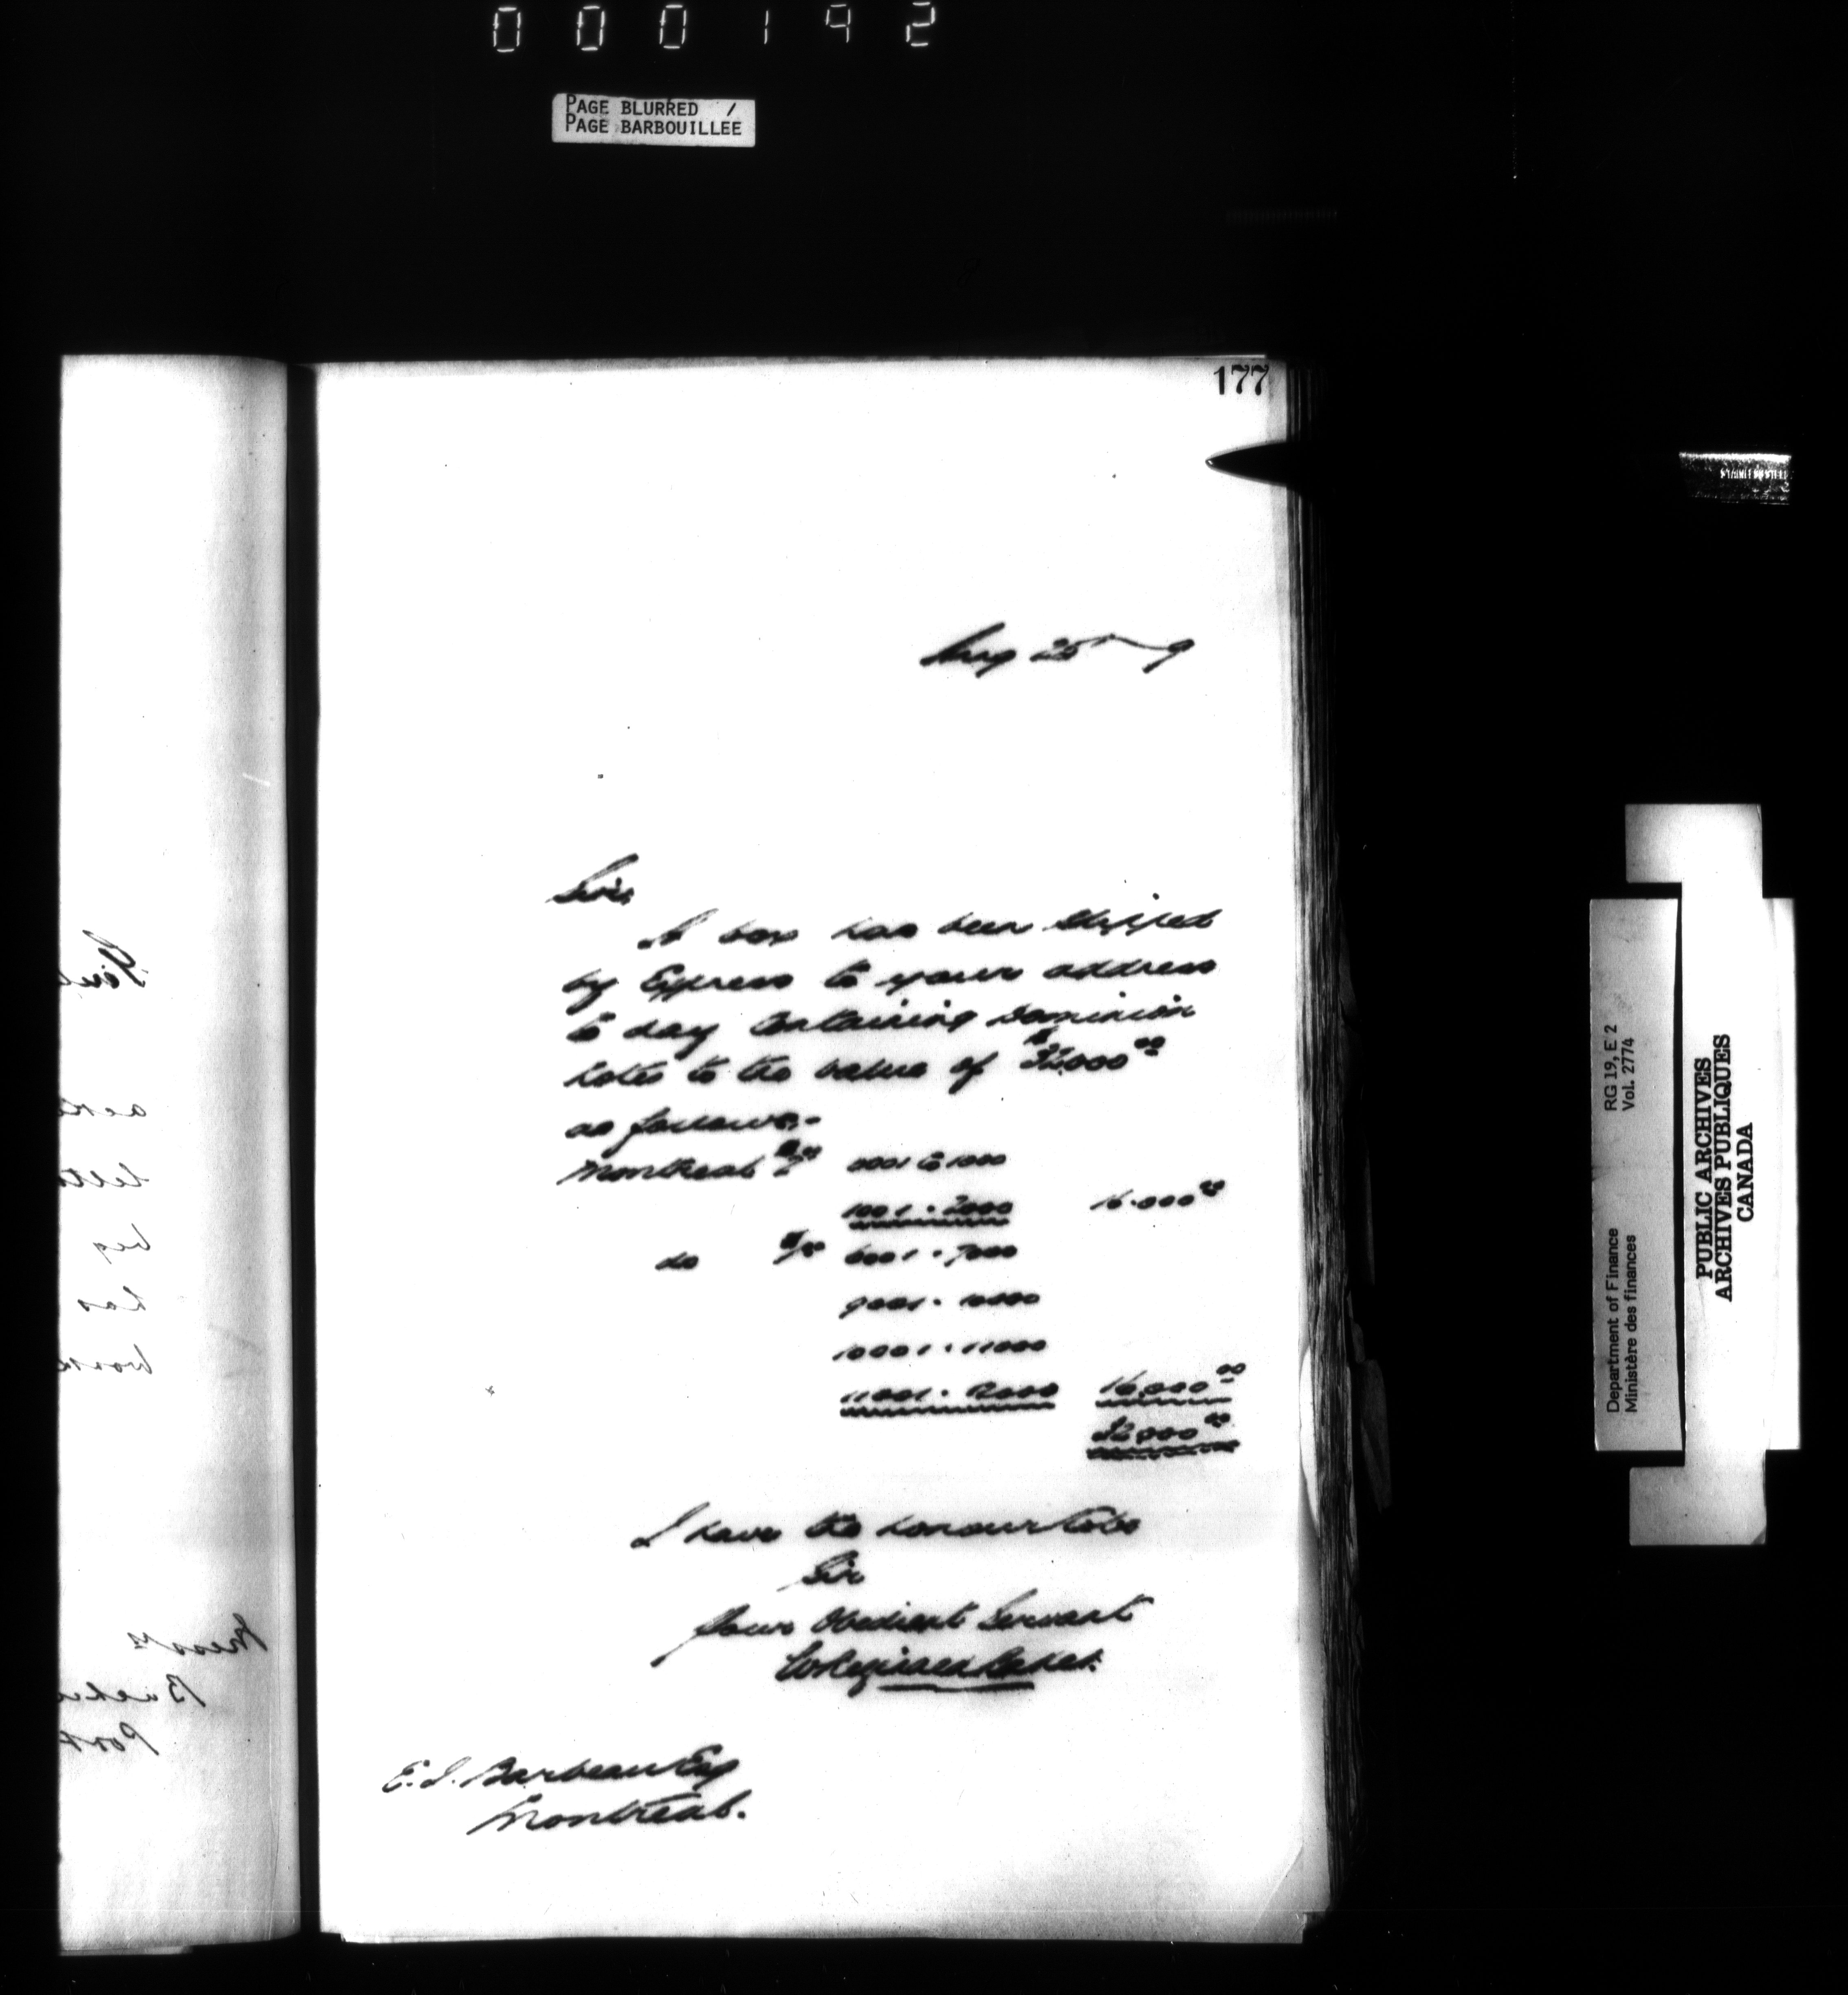 000192
PAGE BLURRED /
PAGE BARBOUILLEE
177
Aug 25th 9
Sir,
A box has been shipped
by Express to your address
to day containing Dominion
notes to the value of $32,000 00
as follows:-
Montreal $2 00 0001 to 1000
1001 . 2000 16.000 00
do $1 00 6001 . 7000
9001 . 10000
10001 . 11000
11001 . 12000 16,000 00
32,000 00
I have the honour to be
Sir
Your Obedient Servant
E. J. Barbeau Esq
Montreal.
RG 19, E 2
Vol. 2774
Department of Finance
Ministère des finances
PUBLIC ARCHIVES
ARCHIVES PUBLIQUES
CANADA